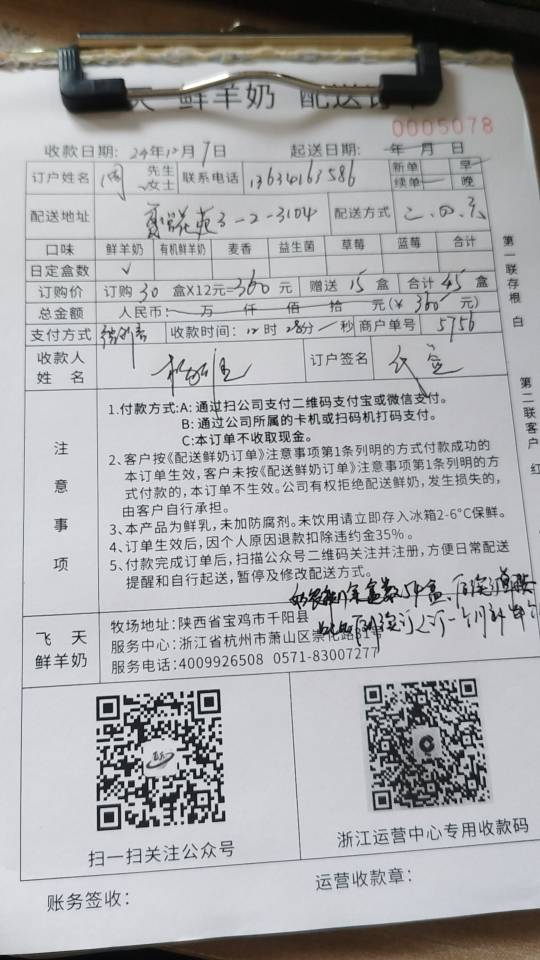 天 鲜羊奶 配送订单
0005078
收款日期：24年12月7日 起送日期： 年 月 日
订户姓名 周 先生 女士 联系电话 13634163586 新单 续单 早 晚
配送地址 苑3-2-3104 配送方式 二.四.六
口味 鲜羊奶 有机鲜羊奶 麦香 益生菌 草莓 蓝莓 合计
日定盒数 ✓
订购价 订购 30 盒X12元=360元 赠送 15 盒 合计 45 盒
总金额 人民币： 万 仟 佰 拾 元(￥ 360 元)
支付方式 收款时间：12时28分 秒 商户单号 5756
收款人姓名 订户签名 代签
注意事项
1.付款方式:A: 通过扫公司支付二维码支付宝或微信支付。
B: 通过公司所属的卡机或扫码机打码支付。
C:本订单不收取现金。
2、客户按《配送鲜奶订单》注意事项第1条列明的方式付款成功的
本订单生效，客户未按《配送鲜奶订单》注意事项第1条列明的方
式付款的，本订单不生效。公司有权拒绝配送鲜奶，发生损失的，
由客户自行承担。
3、本产品为鲜乳，未加防腐剂。未饮用请立即存入冰箱2-6°C保鲜。
4、订单生效后，因个人原因退款扣除违约金35%。
5、付款完成订单后，扫描公众号二维码关注并注册，方便日常配送
提醒和自行起送，暂停及修改配送方式。
飞天
鲜羊奶
牧场地址：陕西省宝鸡市千阳县
服务中心：浙江省杭州市萧山区崇化路31号
服务电话：4009926508 0571-83007277
扫一扫关注公众号
浙江运营中心专用收款码
账务签收：
运营收款章：
第一联存根 白
第二联客户 红